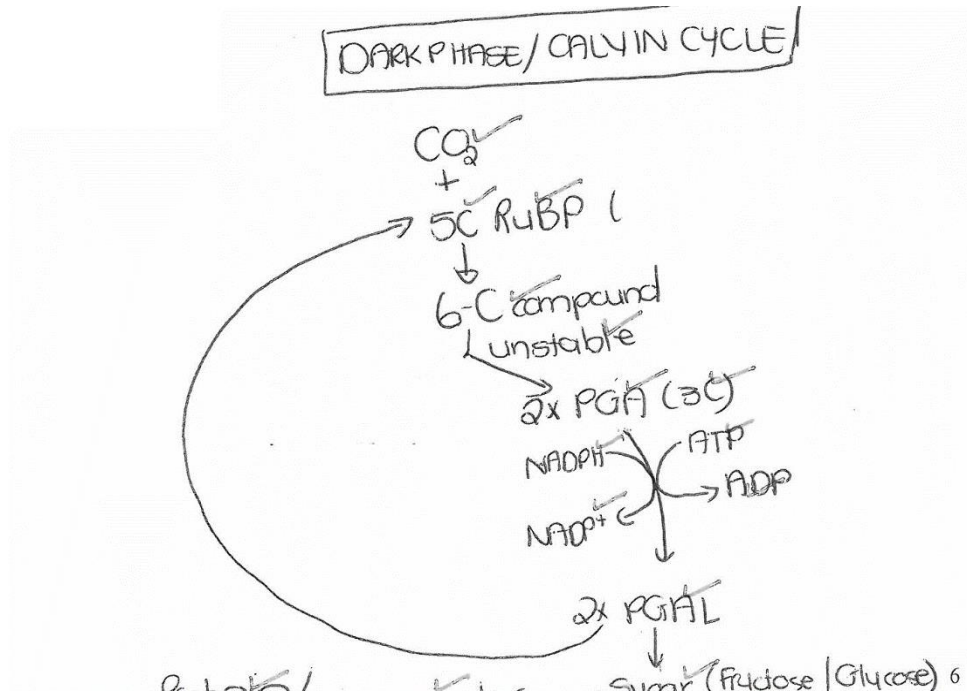 DARK PHASE/ CALVIN CYCLE
CO2
+
5C RuBP (
6-C compound
unstable
2x PGA (3C)
NADPH ATP
ADP
NADP+
2x PGAL
Sugar (Fructose | Glucose) 6